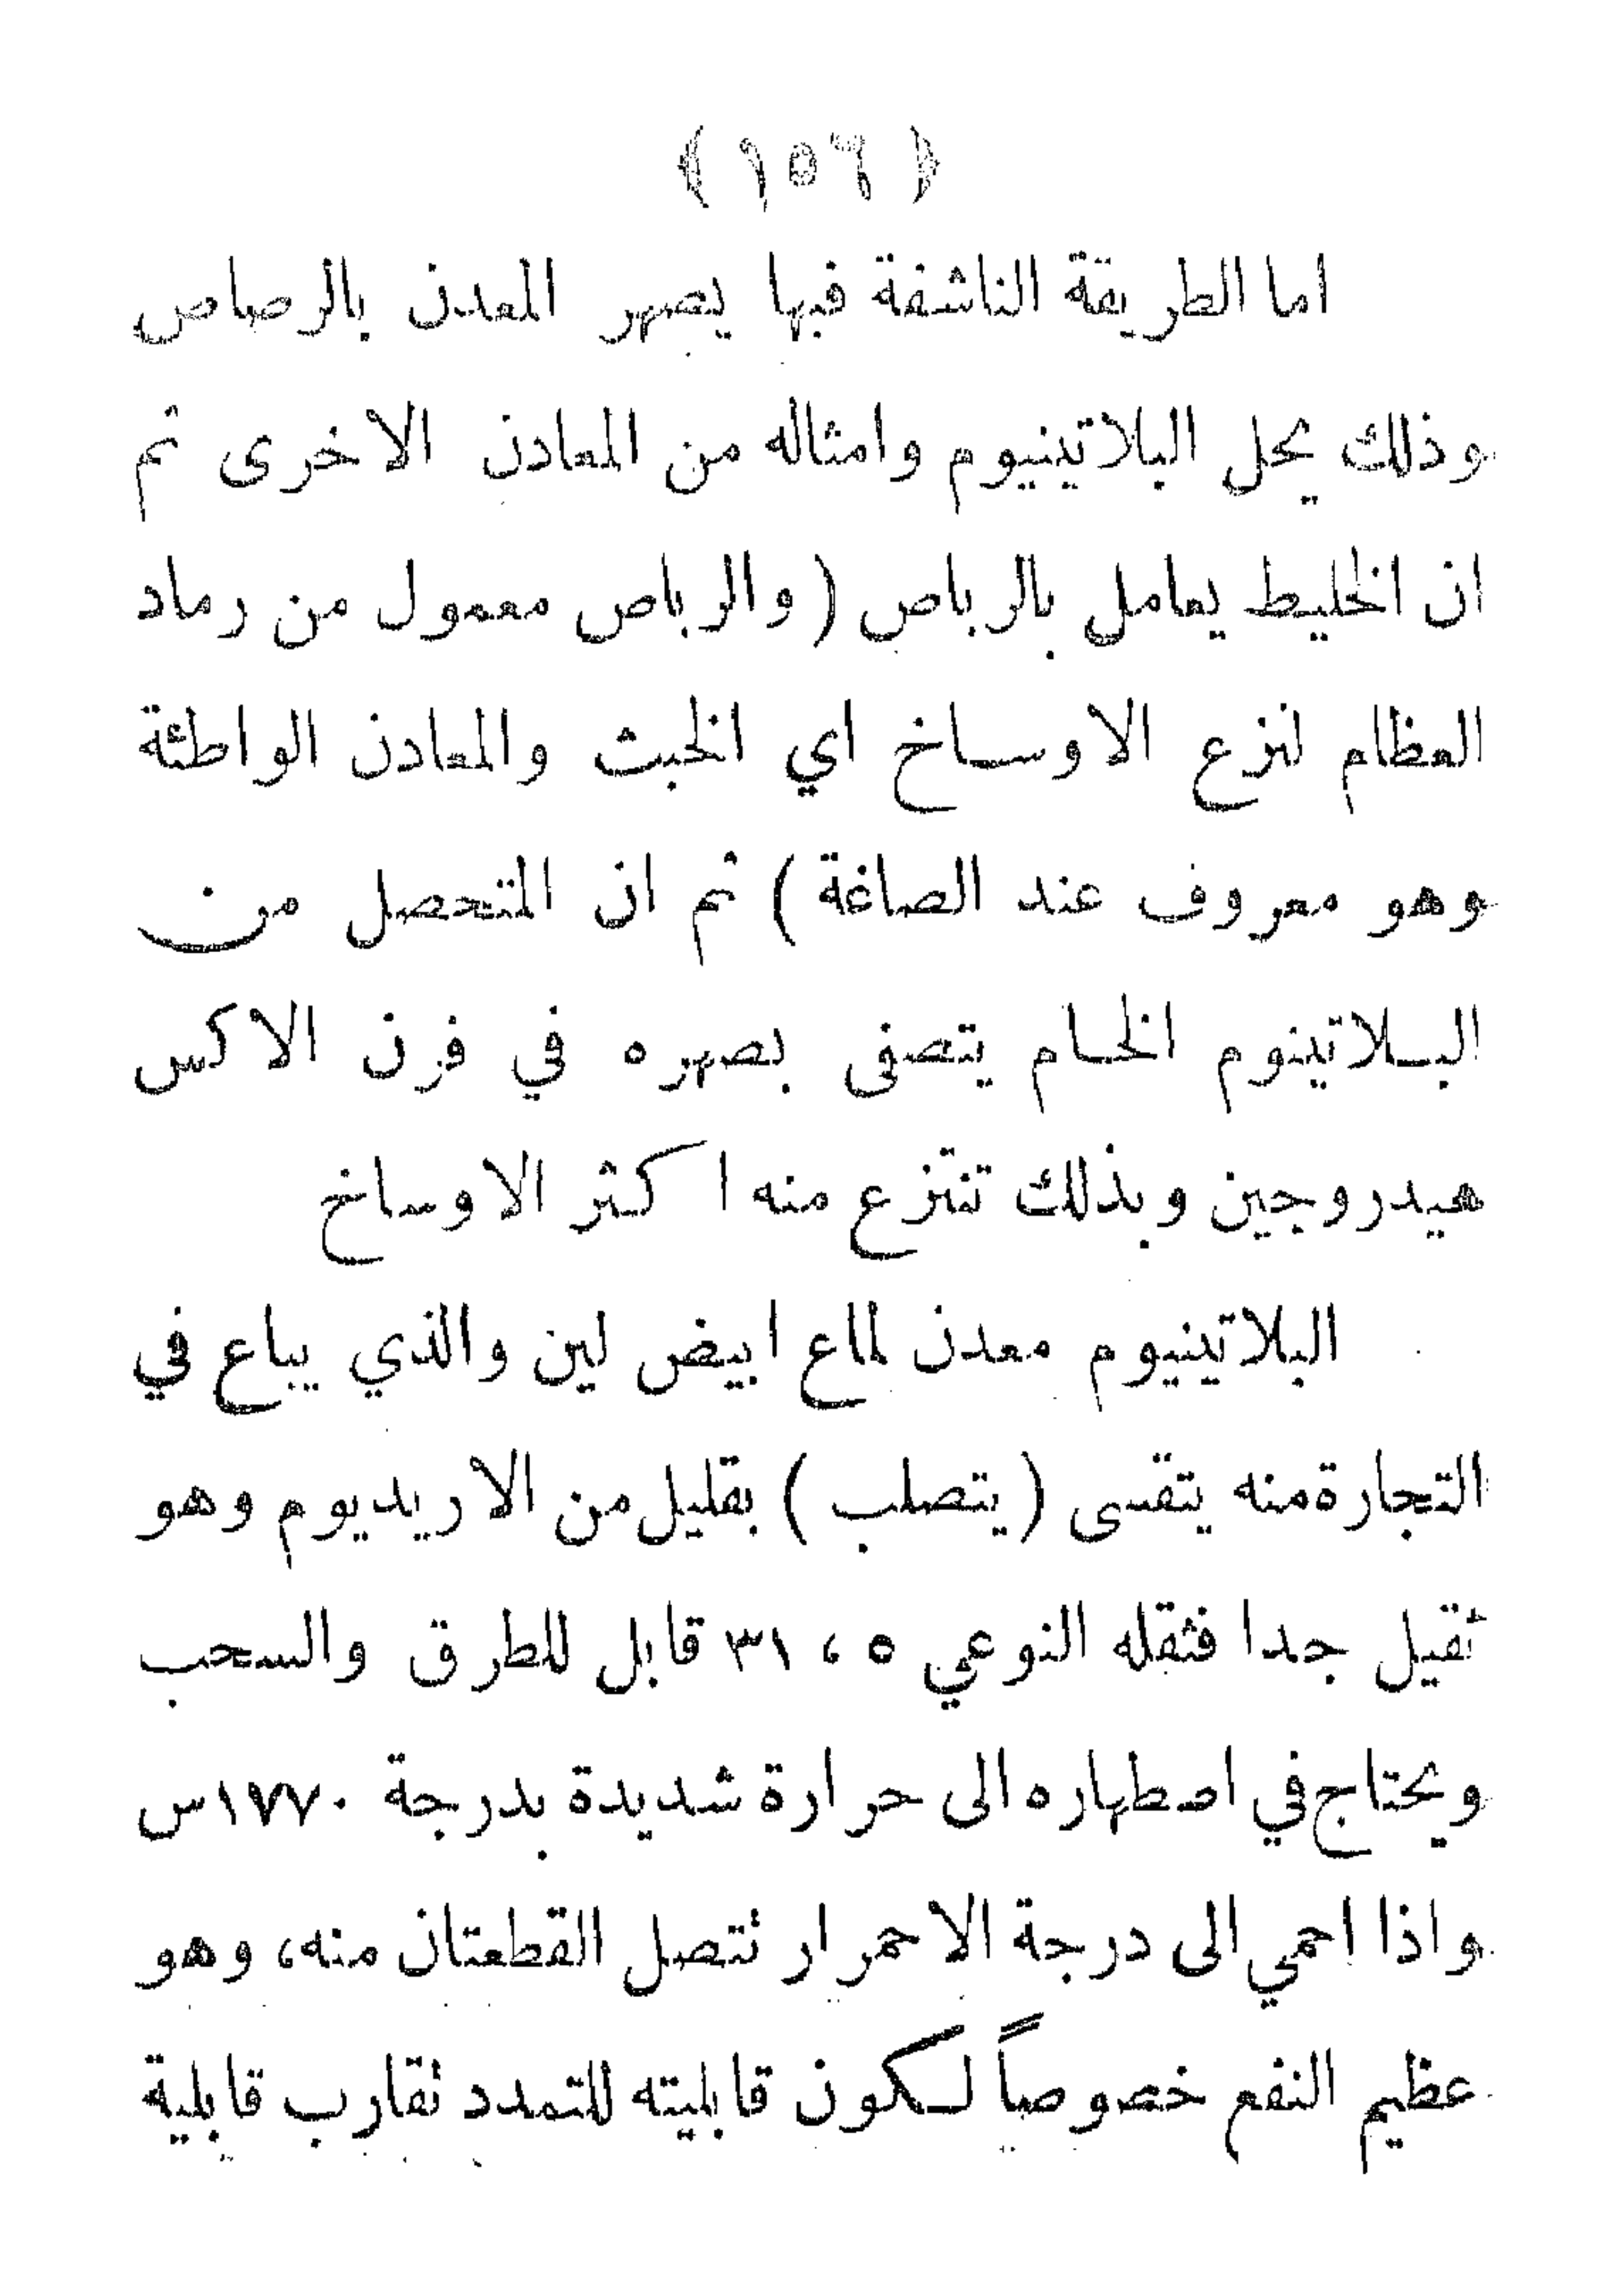 ﴿ ١٥٦ ﴾
اما الطريقة الناشفة فبها يصهر المعدن بالرصاص
وذلك يحل البلاتينيوم وامثاله من المعادن الاخرى ثم
ان الخليط يعامل بالرباص ( والرباص معمول من رماد
العظام لنزع الاوساخ اي الخبث والمعادن الواطئة
وهو معروف عند الصاغة ) ثم ان المتحصل من
البلاتينوم الخام يتصفى بصهره في فرن الاكس
هيدروجين وبذلك تنتزع منه اكثر الاوساخ
البلاتينيوم معدن لماع ابيض لين والذي يباع في
التجارة منه يتقسى ( يتصلب ) بقليل من الاريديوم وهو
ثقيل جدا فثقله النوعي ٥ ، ٣١ قابل للطرق والسحب
ويحتاج في اصطهاره الى حرارة شديدة بدرجة ١٧٧٠س
واذا احمي الى درجة الاحمرار تتصل القطعتان منه، وهو
عظيم النفع خصوصاً لكون قابليته للتمدد تقارب قابلية